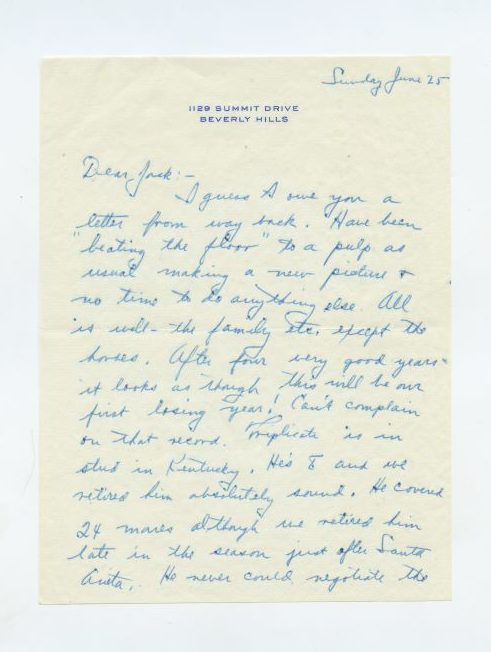 Sunday June 25
1129 SUMMIT DRIVE
BEVERLY HILLS
Dear Jack:-
I guess I owe you a
letter from way back. Have been
"beating the floor" to a pulp as
usual making a new picture &
no time to do anything else. All
is well - the family etc. except the
horses. After four very good years -
it looks as though this will be our
first losing year! Can't complain
on that record. Triplicate is in
stud in Kentucky. He's 8 and we
retired him absolutely sound. He covered
24 mares although we retired him
late in the season just after Santa
Anita. He never could negotiate the